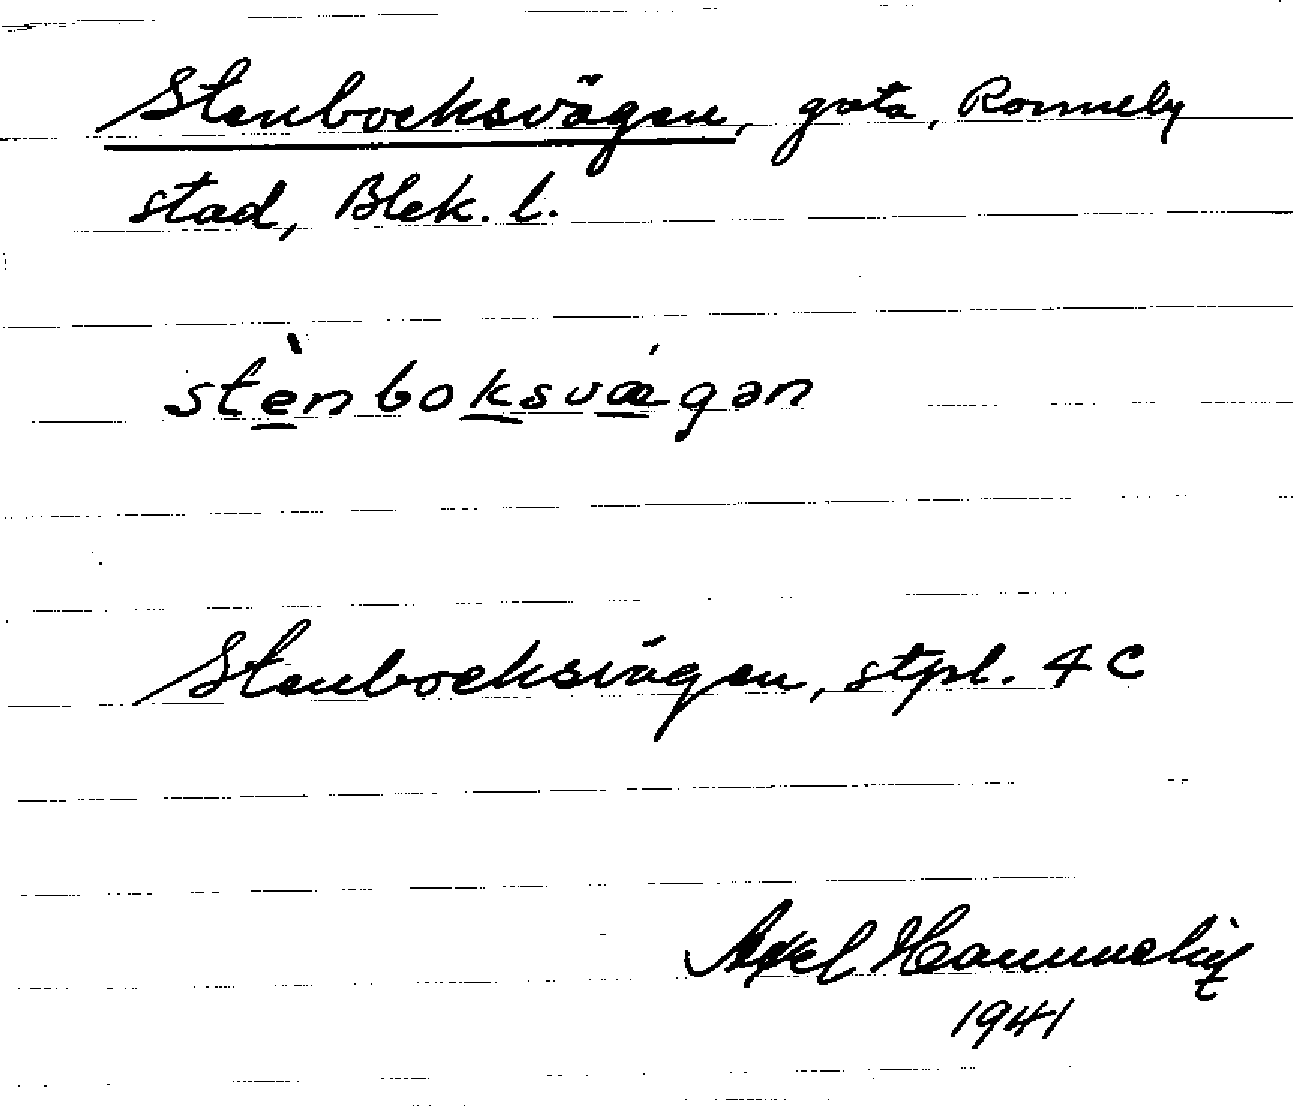 Stenbocksvägen, gata, Ronneby
stad, Blek. l.
stènboksvægən
Stenbocksvägen, stpl. 4 C
Axel
1941